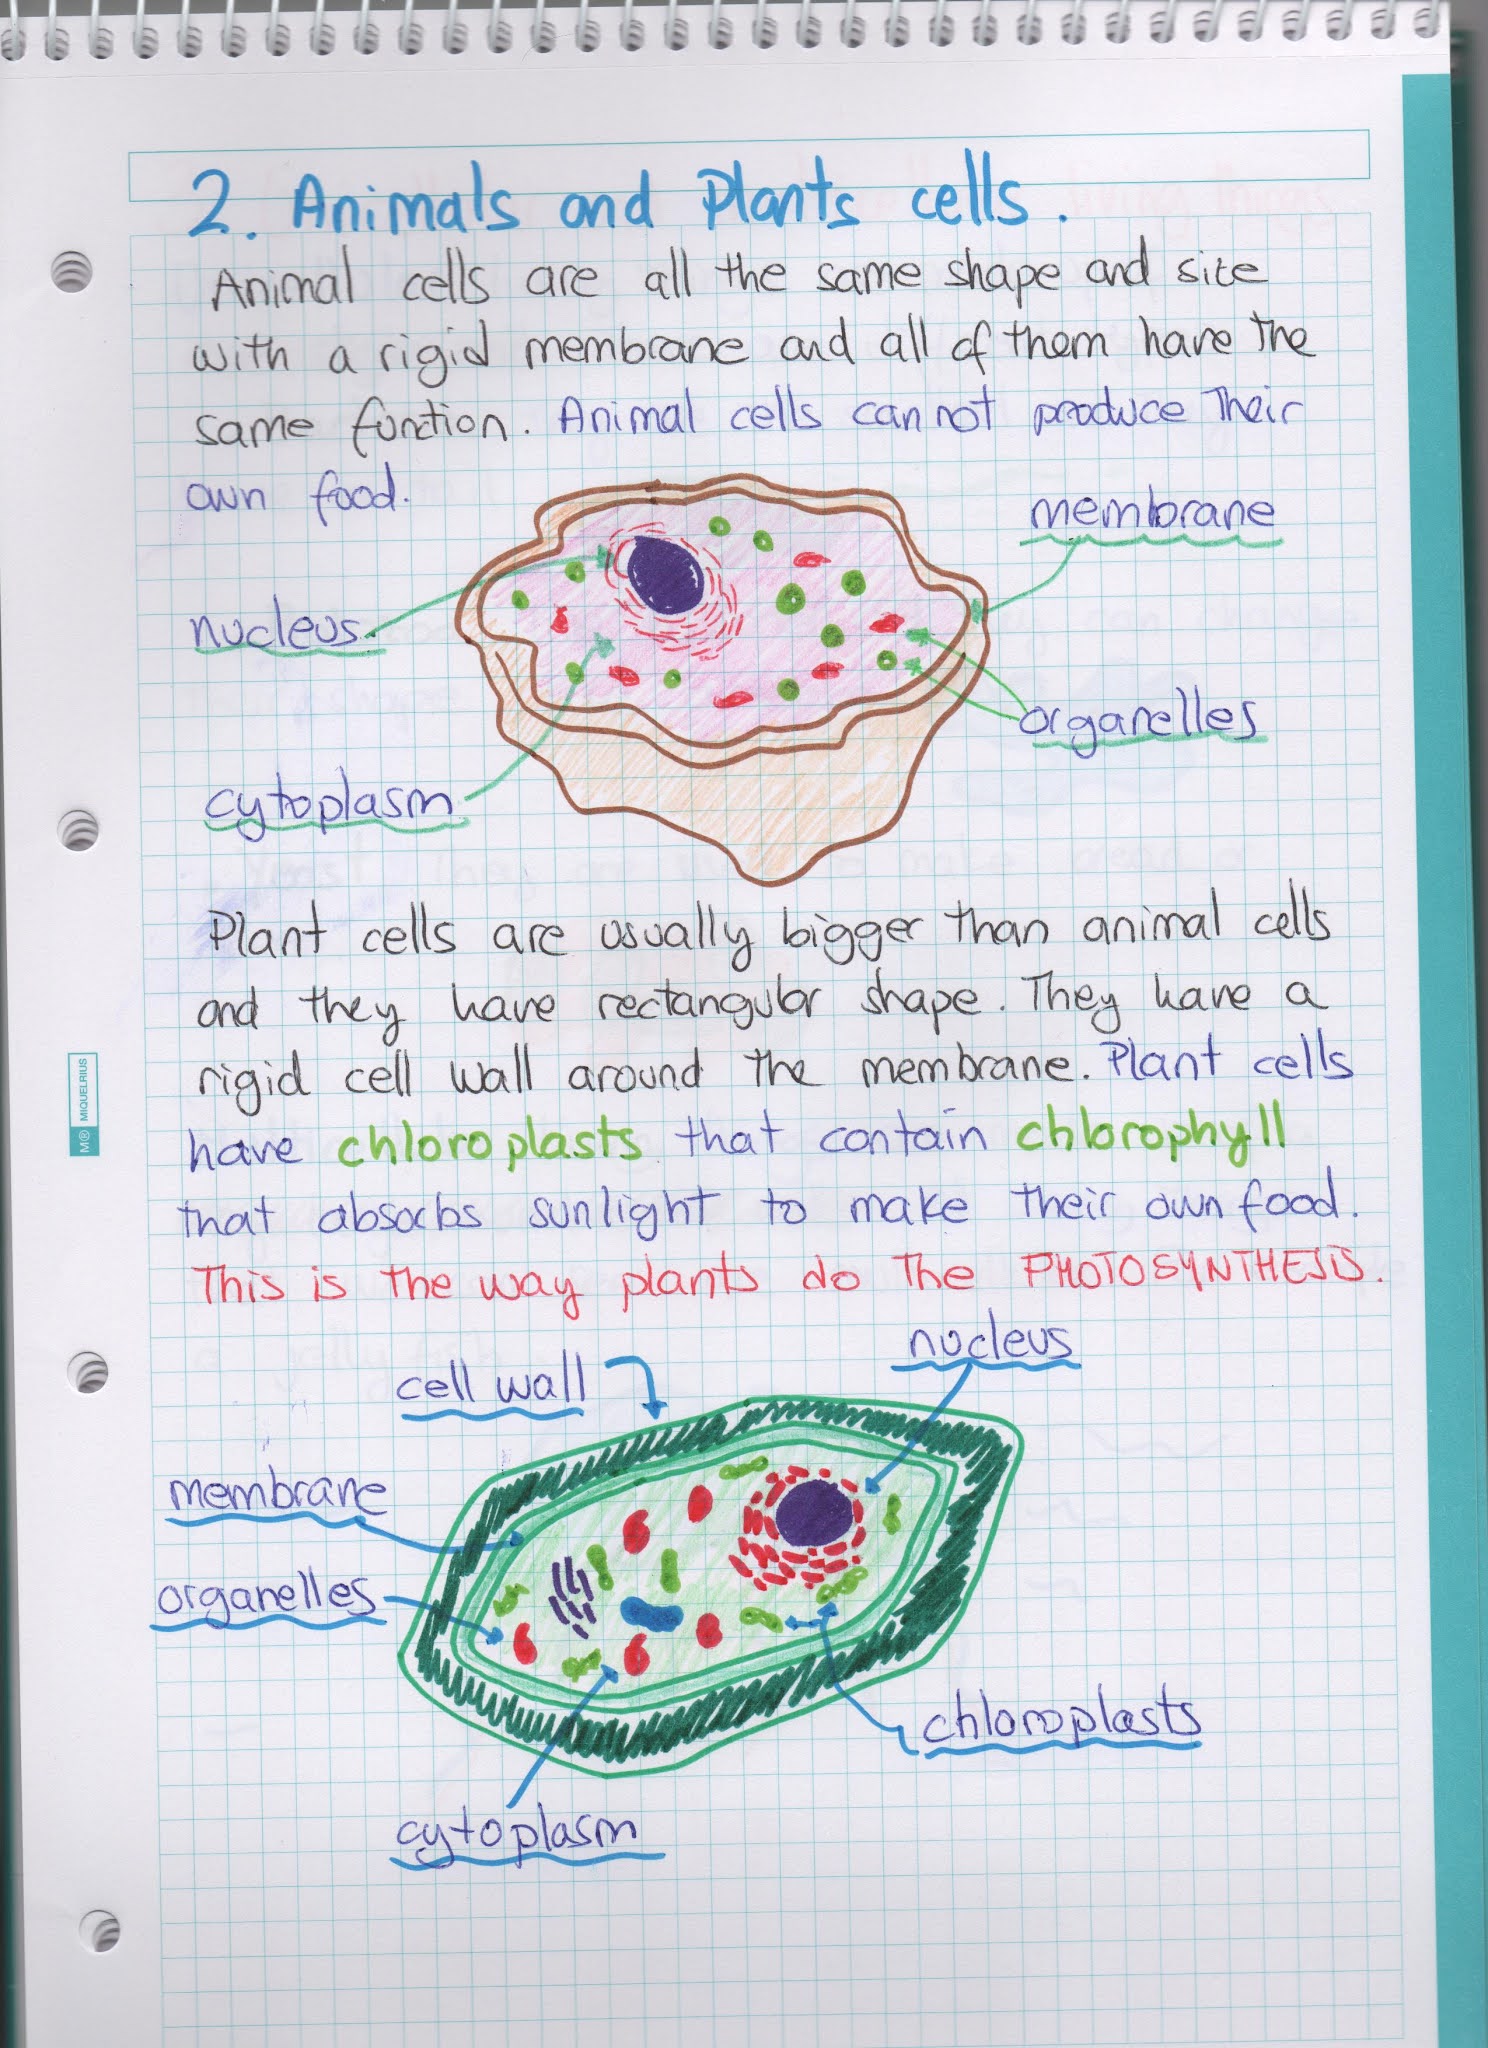 2. Animals and Plants cells.
Animal cells are all the same shape and site
with a rigid membrane and all of them have the
same function. Animal cells cannot produce their
own food.
membrane
nucleus.
organelles
cytoplasm
Plant cells are usually bigger than animal cells
and they have rectangular shape. They have a
rigid cell wall around the membrane. Plant cells
have chloroplasts that contain chlorophyll
that absorbs sunlight to make their own food.
This is the way plants do the PHOTOSYNTHESIS.
nucleus
cell wall
membrane
organelles
chloroplasts
cytoplasm
M® MIQUELRIUS